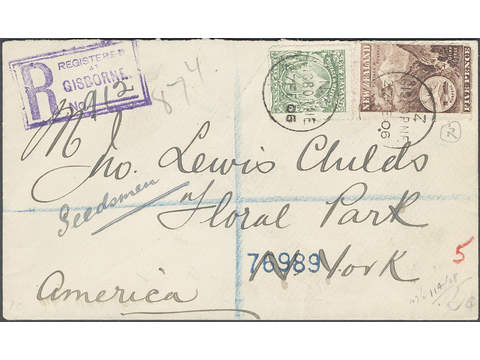 REGISTERED
AT
GISBORNE
R
No 912
874
NEW ZEALAND
FIVE PENCE
GISBORNE
FE
06
06
Mr
Jno. Lewis Childs
Seedsmen
Floral Park
76989
N. York
5
America